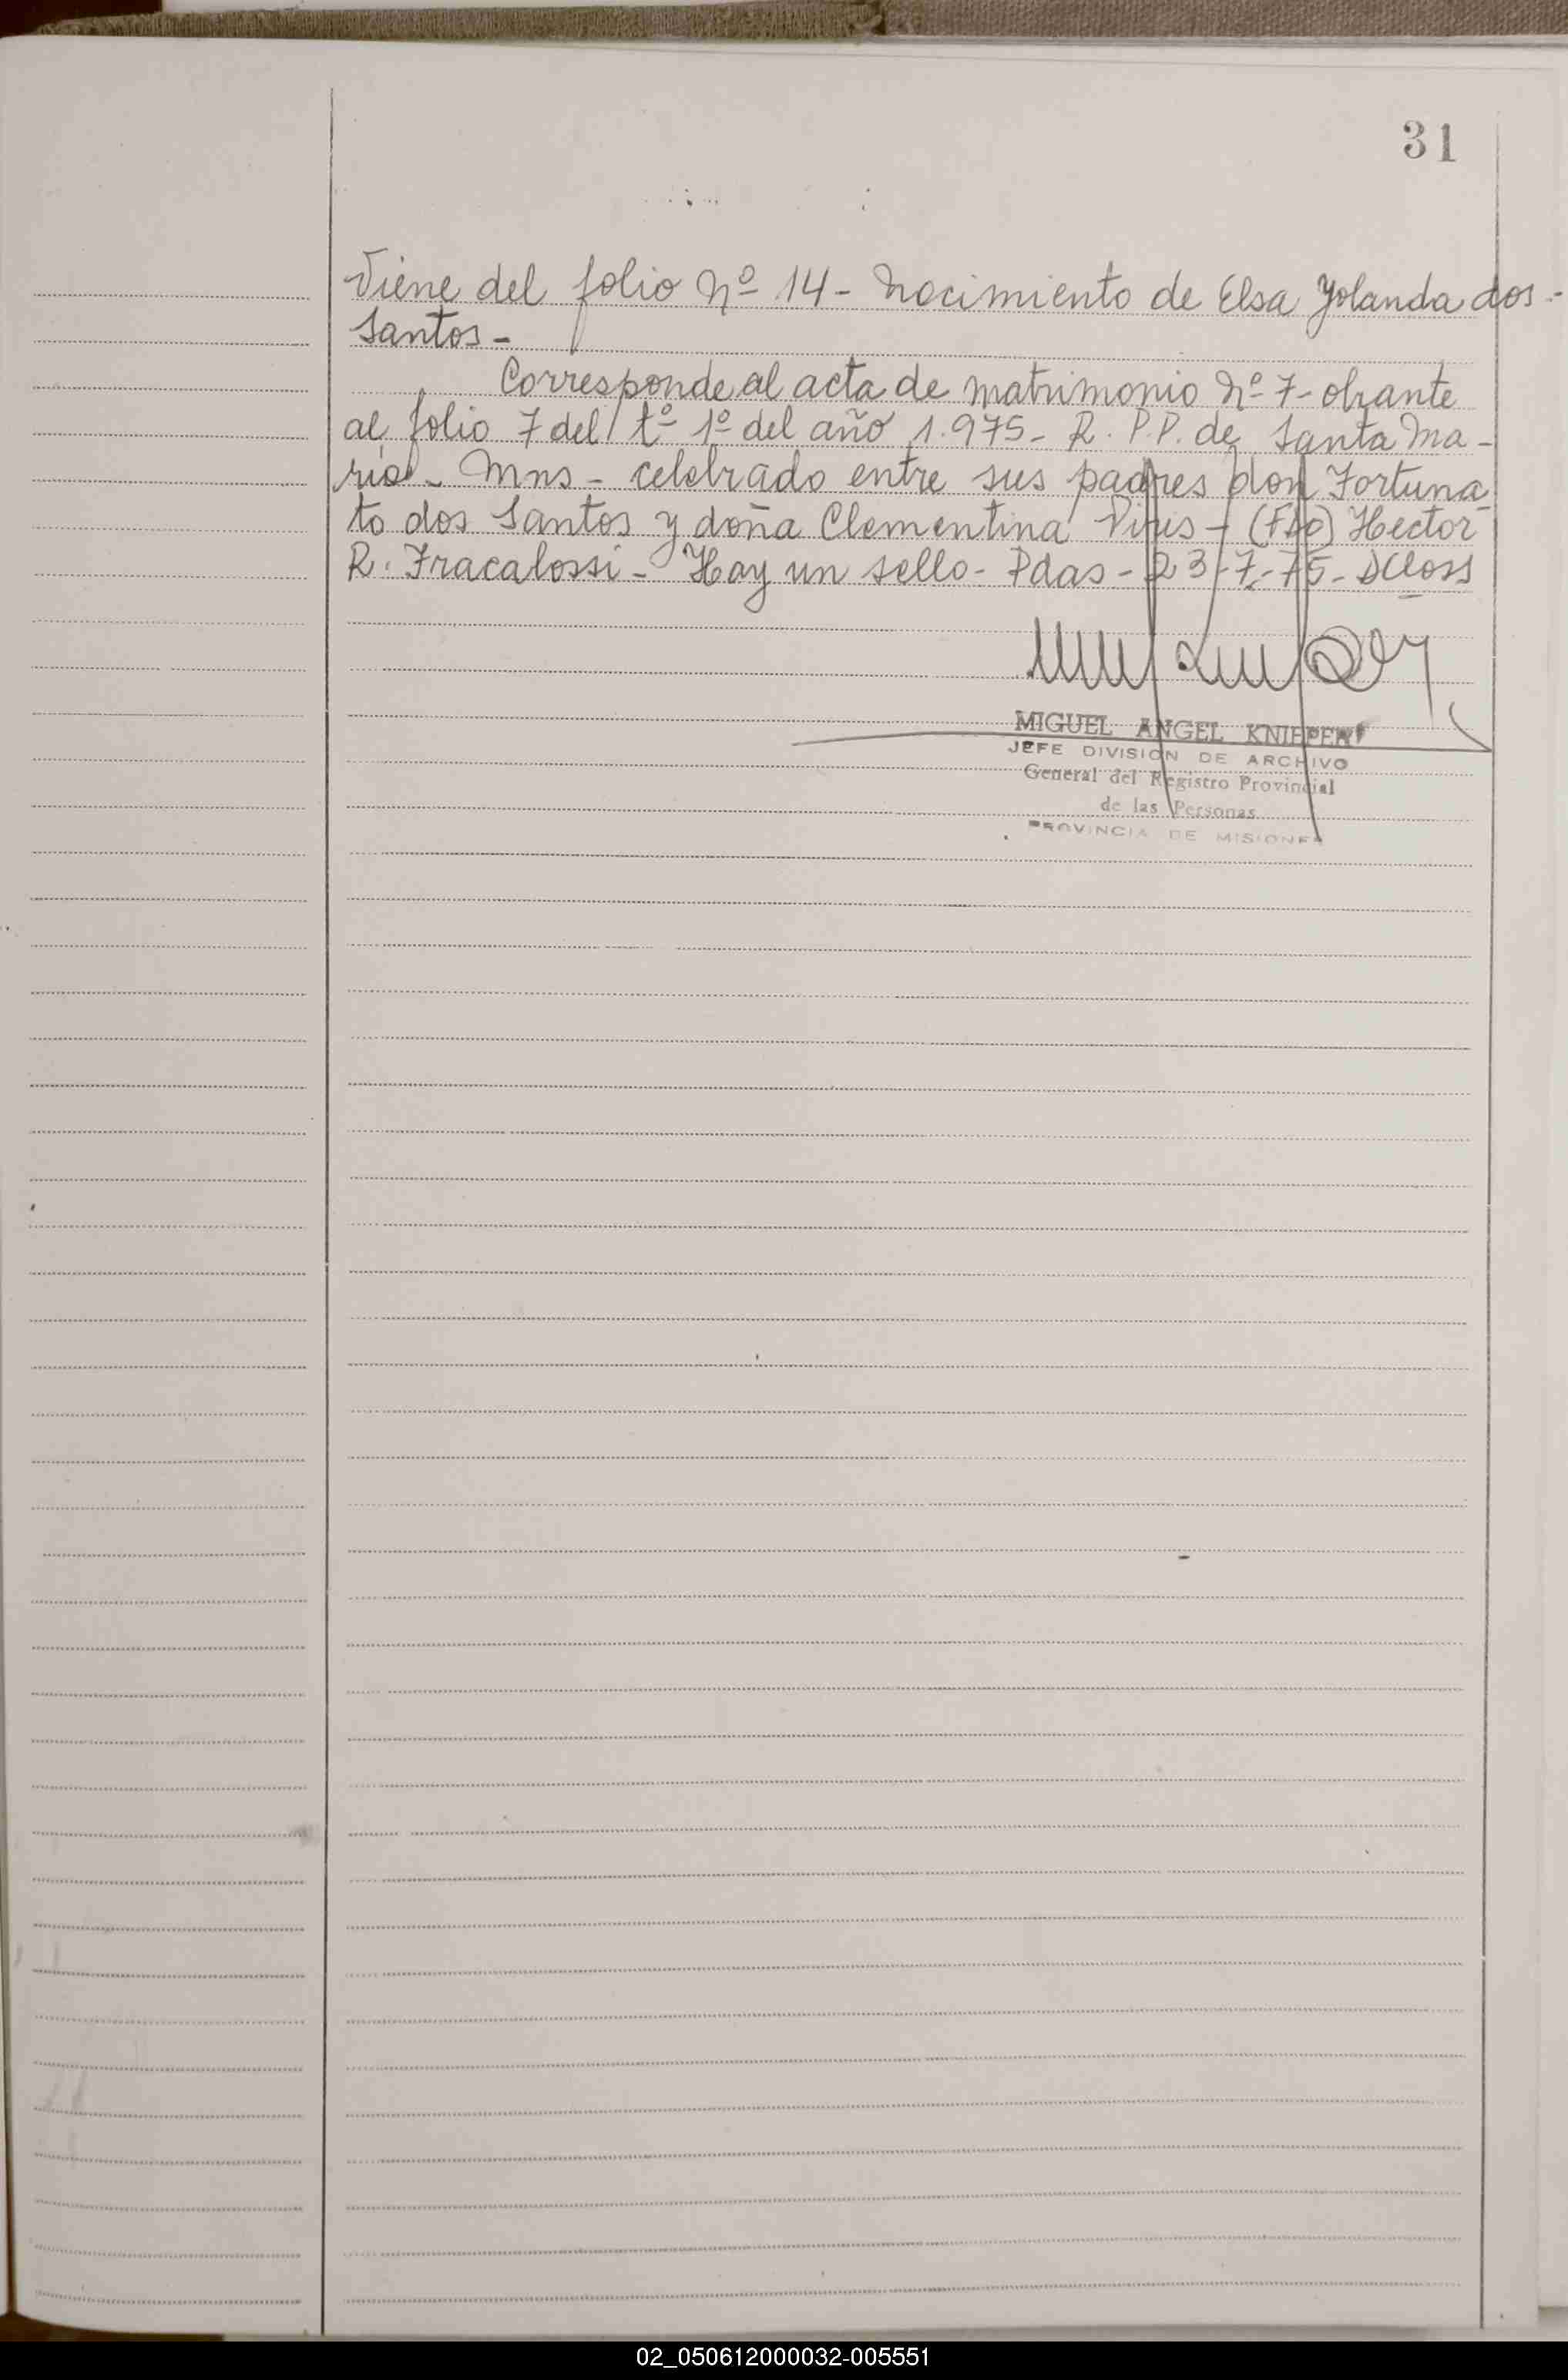 31
Viene del folio Nº 14 - Nacimiento de Elsa Yolanda dos -
Santos -
Corresponde al acta de matrimonio Nº 7 - obrante
al folio 7 del tº 1º del año 1.975 - R. P. P. de Santa Ma -
ría - Mns - celebrado entre sus padres don Fortuna
to dos Santos y doña Clementina - (Fdo) Hector
R. Fracalossi - Hay un sello - Pdas - 23-7-75 -
MIGUEL ANGEL KNIEPER
JEFE DIVISION DE ARCHIVO
General del Registro Provincial
de las Personas
PROVINCIA DE MISIONES
02_050612000032-005551